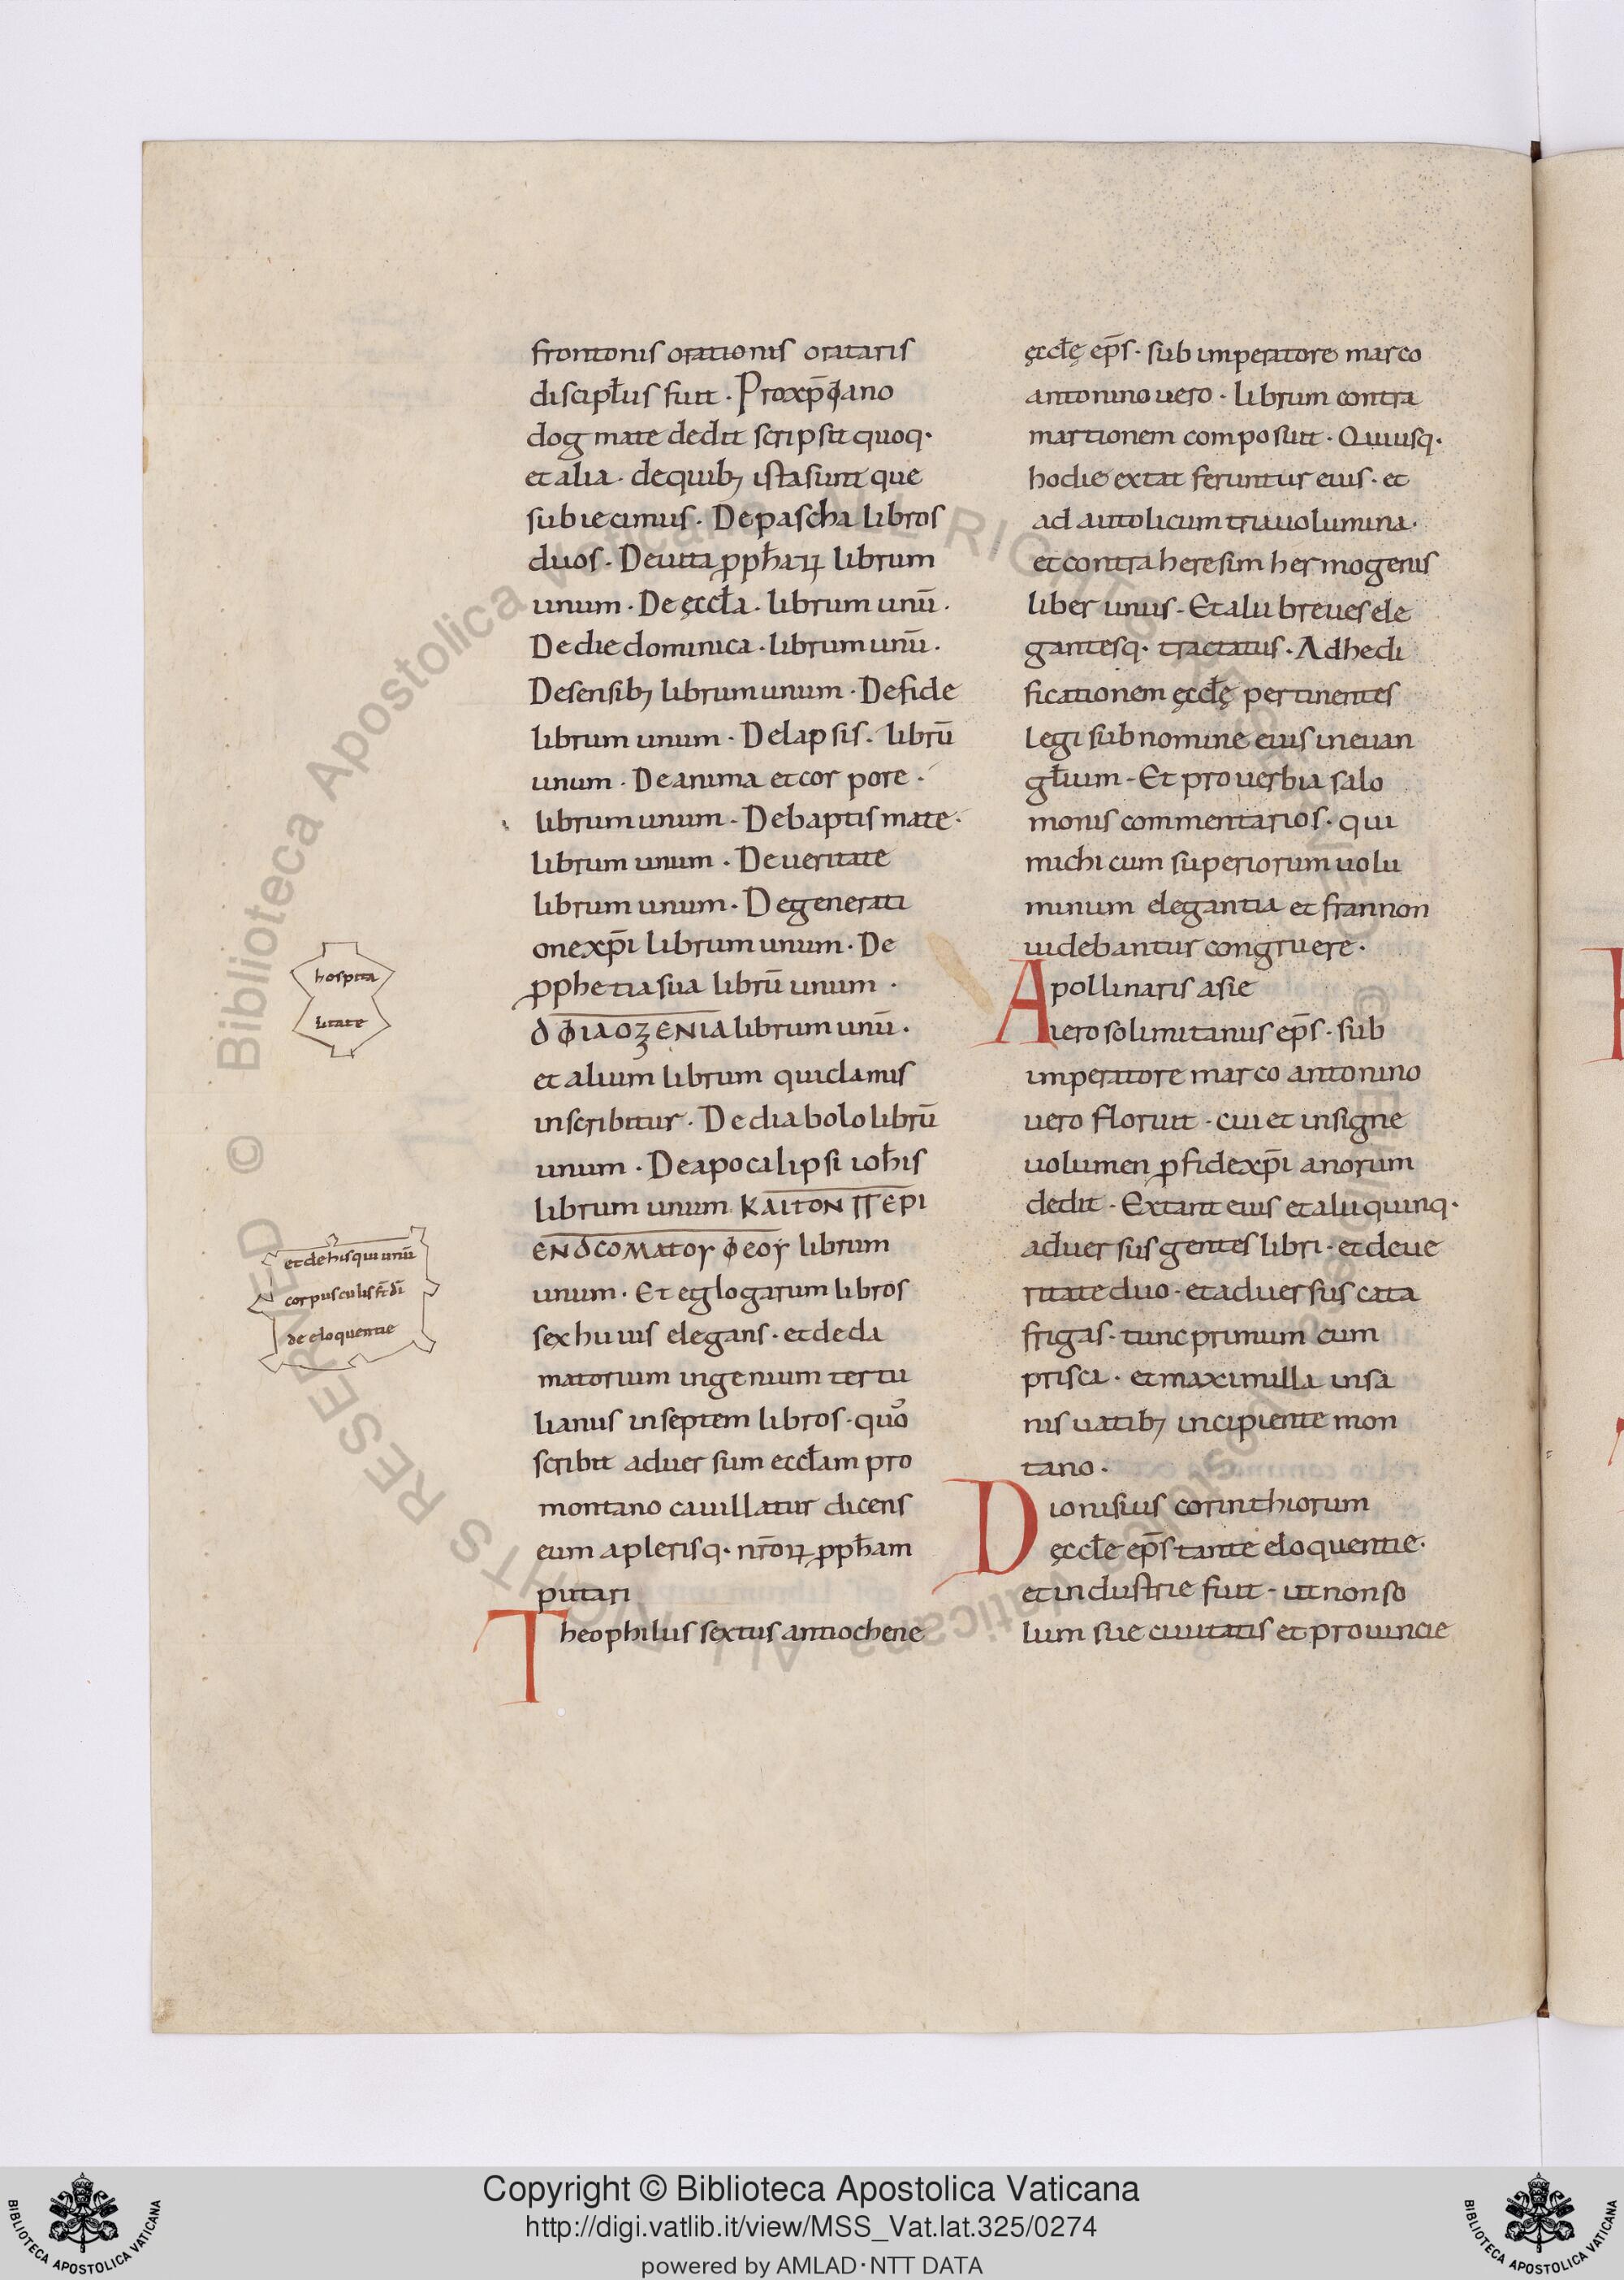 frontonis orationis orataris
discipl̄us fuit · Proxp̄ɸano
dogmate dedit scripsit quoq·
et alia · de quib; ista sunt que
subiecimus · De pascha libros
duos · De uita ꝓph̄aꝝ librum
unum · De ęccl̄a · librum unū ·
De die dominica · librum unū ·
De sensib; librum unum · De fide
librum unum · De lapsis · librū
unum · De anima et corpore ·
librum unum · De baptismate ·
librum unum · De ueritate
librum unum · De generati
one xp̄i librum unum · De
ꝓphetia sua librū unum ·
δ ɸιλοʒενιλ librum unū ·
et alium librum qui clamis
inscribitur · De diabolo librū
unum · De apocalipsi ioh̄is
librum unum ΚΑΙΤΟΝ ΠΕΡΙ
ΕΝδCOMATOY ɸEOY librum
unum · Et eglogarum libros
sex huius elegans · et decla
matorium ingenium tertu
lianus in septem libros · quō
scribit aduersum eccl̄am pro
montano cauillatur dicens
eum a plerisq· nr̄oꝝ ꝓph̄am
putari
Theophilus sextus antiochene
hospita
litate
et de his qui unū
corpusculis fr̄ dī
de eloquentie
ęccl̄ę ep̄s · sub imperatore marco
antonino uero · librum contra
martionem composuit · Quiusq·
hodie extat feruntur eius · et
ad autolicum tria uolumina ·
et contra heresim hermogenis
liber unus · Et alii breues ele
gantesq· tractatus · Ad hedi
ficationem ęccl̄ę pertinentes
legi sub nomine eius in euan
gl̄ium · Et prouerbia salo
monis commentarios · qui
michi cum superiorum uolu
minum elegantia et frannon
uidebantur congruere ·
Apollinaris asie
ierosolimitanus ep̄s · sub
imperatore marco antonino
uero floruit · cui et insigne
uolumen ꝓ fide xp̄i anorum
dedit · Extant eius et alii quinq·
aduersus gentes libri · et de ue
ritate duo · et aduersus cata
frigas · tunc primum cum
prisca · et maximilla insa
nis uatib; incipiente mon
tano ·
Dionisius corinthiorum
ęccl̄e ep̄s tante eloquentie ·
et industrie fuit · ut non so
lum sue ciuitatis et prouincie
Copyright © Biblioteca Apostolica Vaticana
http://digi.vatlib.it/view/MSS_Vat.lat.325/0274
powered by AMLAD·NTT DATA
BIBLIOTECA APOSTOLICA VATICANA
BIBLIOTECA APOSTOLICA VATICANA
© Biblioteca Apostolica Vaticana ALL RIGHTS RESERVED
© Biblioteca Apostolica Vaticana ALL RIGHTS RESERVED